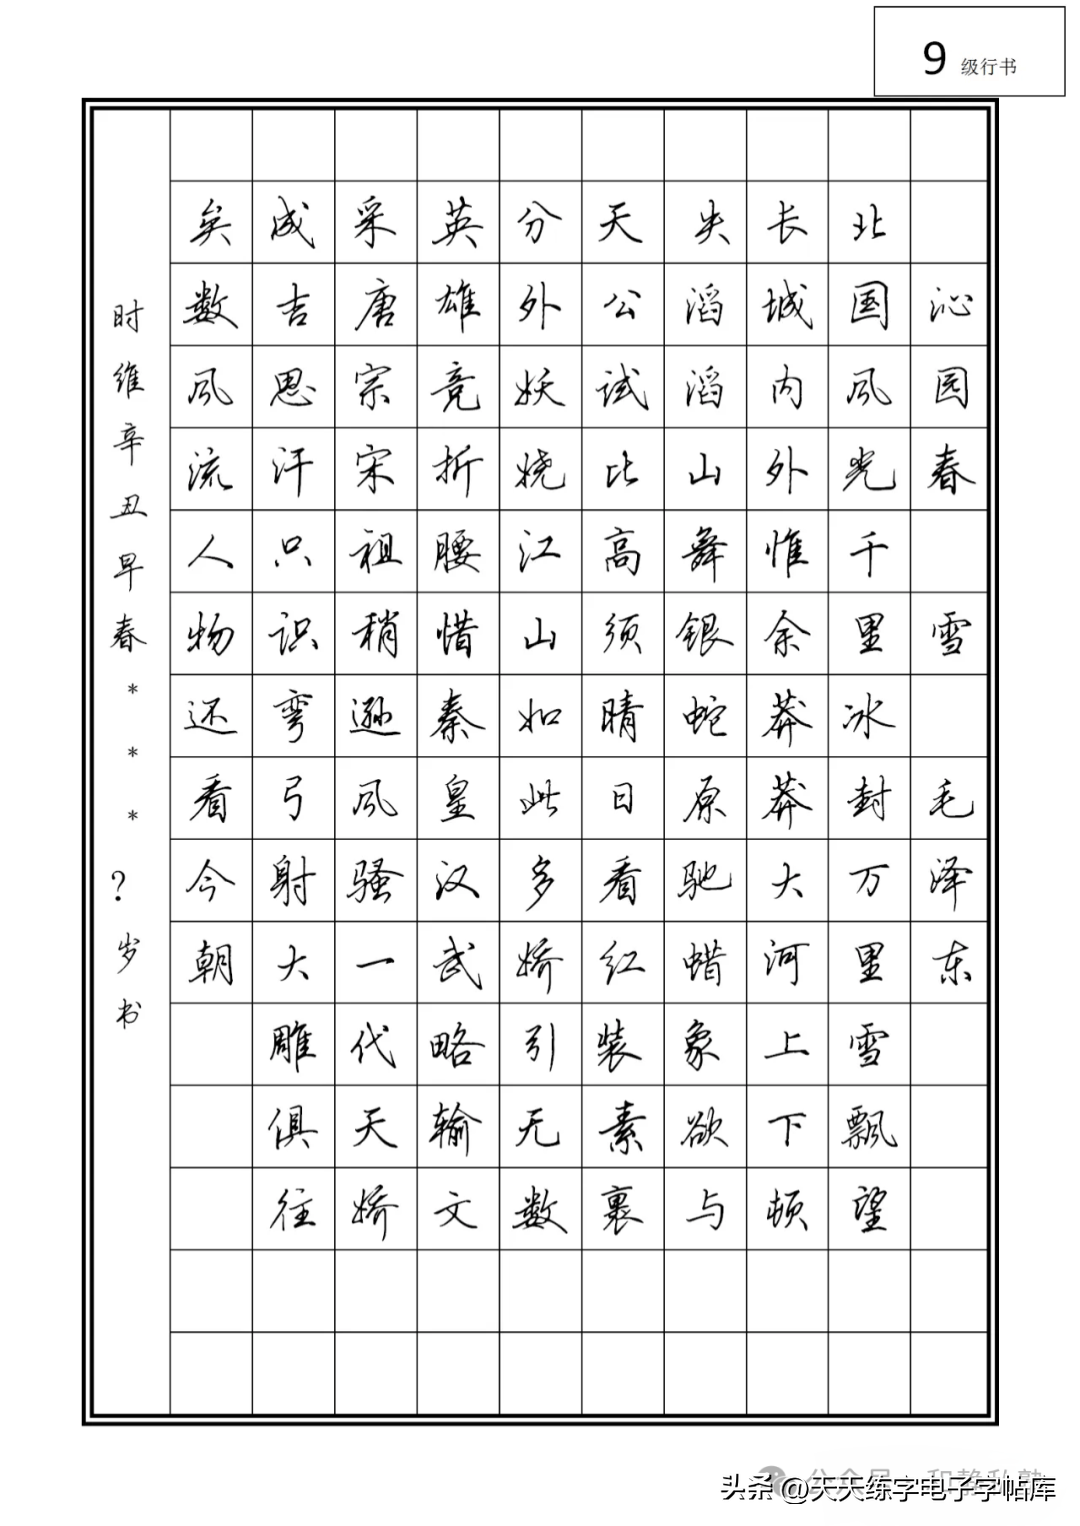 9 级行书
沁园春 雪 毛泽东
北国风光千里冰封万里雪飘望
长城内外惟余莽莽大河上下顿
失滔滔山舞银蛇原驰蜡象欲与
天公试比高须晴日看红装素裹
分外妖娆江山如此多娇引无数
英雄竞折腰惜秦皇汉武略输文
采唐宗宋祖稍逊风骚一代天娇
成吉思汗只识弯弓射大雕俱往
矣数风流人物还看今朝
时维辛丑早春***?岁书
头条 @天天练字电子字帖库